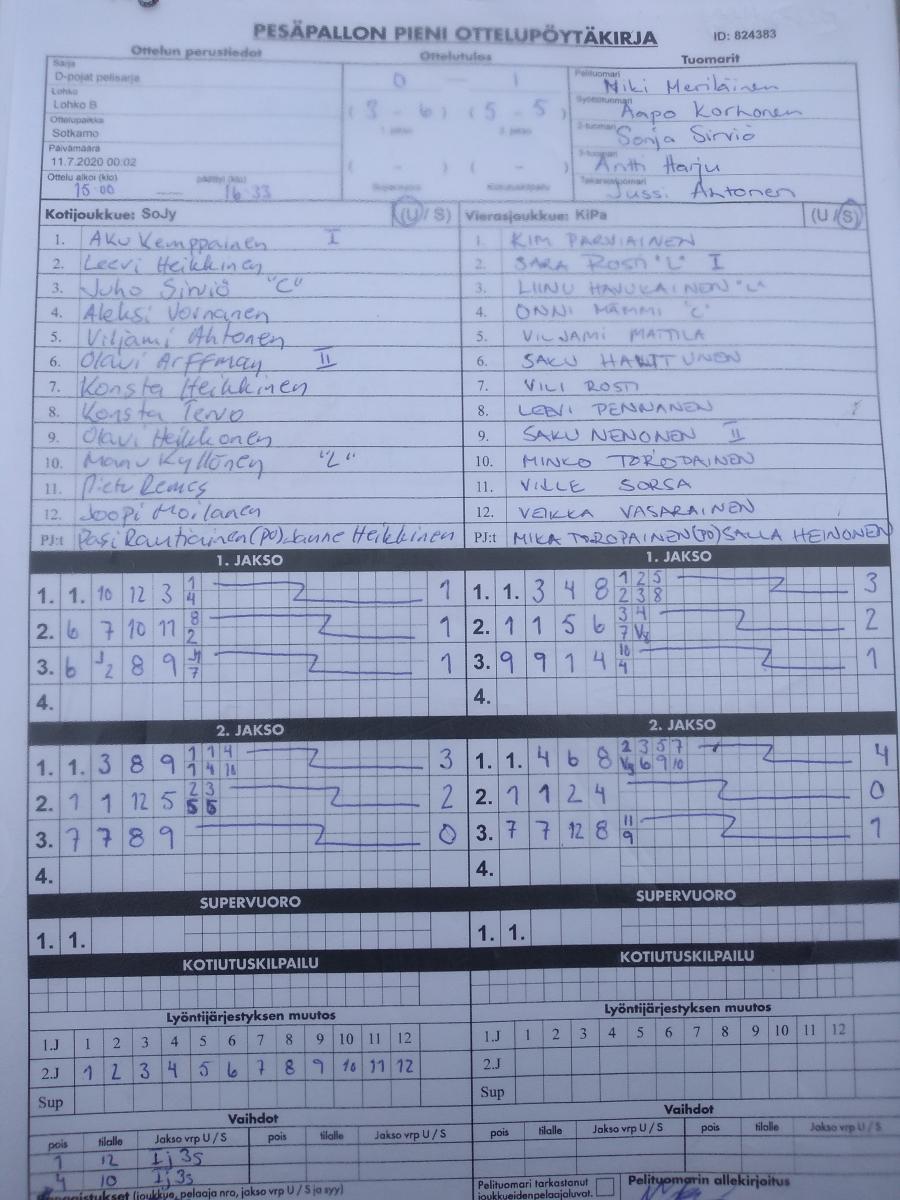 PESÄPALLON PIENI OTTELUPÖYTÄKIRJA ID: 824383
Ottelun perustiedot Ottelutulos Tuomarit
Sarja
D-pojat pelisarja 0 - 1 Pelituomari Niki Meriläinen
Lohko
Lohko B (3 - 6) (5 - 5) Syöttötuomari Aapo Korhonen
Ottelupaikka 1. jakso 2. jakso 2-tuomari Sonja Sirviö
Sotkamo
Päivämäärä ( - ) ( - ) 3-tuomari Antti Harju
11.7.2020 00:02
Ottelu alkoi (klo) päättyi (klo) Supervuoro Kotiutuskilpailu Takarajatuomari Jussi Ahtonen
15:00 16:33
Kotijoukkue: SoJy (U / S) Vierasjoukkue: KiPa (U / S)
1. Aku Kemppainen I 1. KIM PARVIAINEN
2. Leevi Heikkinen 2. SARA ROSTI "L" I
3. Juho Sirviö "C" 3. LIINU HAVUKAINEN "L"
4. Aleksi Vornanen 4. ONNI MÄMMI "C"
5. Viljami Ahtonen 5. VILJAMI MATTILA
6. Olavi Arffman II 6. SAKU HARTTUNEN
7. Konsta Heikkinen 7. VILI ROSTI
8. Konsta Tervo 8. LEEVI PENNANEN
9. Olavi Heikkonen 9. SAKU NENONEN II
10. Manu Kyllönen "L" 10. MINKO TOROPAINEN
11. Pietu Remes 11. VILLE SORSA
12. Joopi Moilanen 12. VEIKKA VASARAINEN
PJ:t Pasi Rautiainen(PO) Janne Heikkinen PJ:t MIKA TOROPAINEN(PO) SALLA HEINONEN
1. JAKSO 1. JAKSO
1. 1. 10 12 3 1 4 1 1. 1. 3 4 8 1 2 5 2 3 8 3
2. 6 7 10 11 8 2 1 2. 1 1 5 6 3 4 7 V8 2
3. 6 J2 8 9 7 1 3. 9 9 1 4 10 4 1
4. 4.
2. JAKSO 2. JAKSO
1. 1. 3 8 9 1 1 4 1 4 10 3 1. 1. 4 6 8 2 3 5 7 6 9 10 4
2. 1 1 12 5 2 3 5 5 2 2. 1 1 2 4 0
3. 7 7 8 9 0 3. 7 7 12 8 11 9 1
4. 4.
SUPERVUORO SUPERVUORO
1. 1. 1. 1.
KOTIUTUSKILPAILU KOTIUTUSKILPAILU
Lyöntijärjestyksen muutos Lyöntijärjestyksen muutos
1.J 1 2 3 4 5 6 7 8 9 10 11 12 1.J 1 2 3 4 5 6 7 8 9 10 11 12
2.J 1 2 3 4 5 6 7 8 9 10 11 12 2.J
Sup Sup
Vaihdot Vaihdot
pois tilalle Jakso vrp U / S pois tilalle Jakso vrp U / S pois tilalle Jakso vrp U / S pois tilalle Jakso vrp U / S
1 12 Ij 3s
4 10 Ij 3s
Rangaistukset (joukkue, pelaaja nro, jakso vrp U / S ja syy) Pelituomari tarkastanut joukkueidenpelaajaluvat. Pelituomarin allekirjoitus